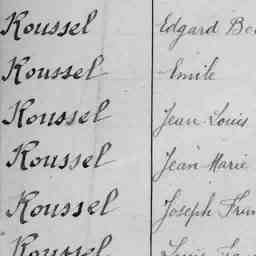 Roussel Edgard
Roussel Emile
Roussel Jean Louis
Roussel Jean Marie
Roussel Joseph
Roussel Louis